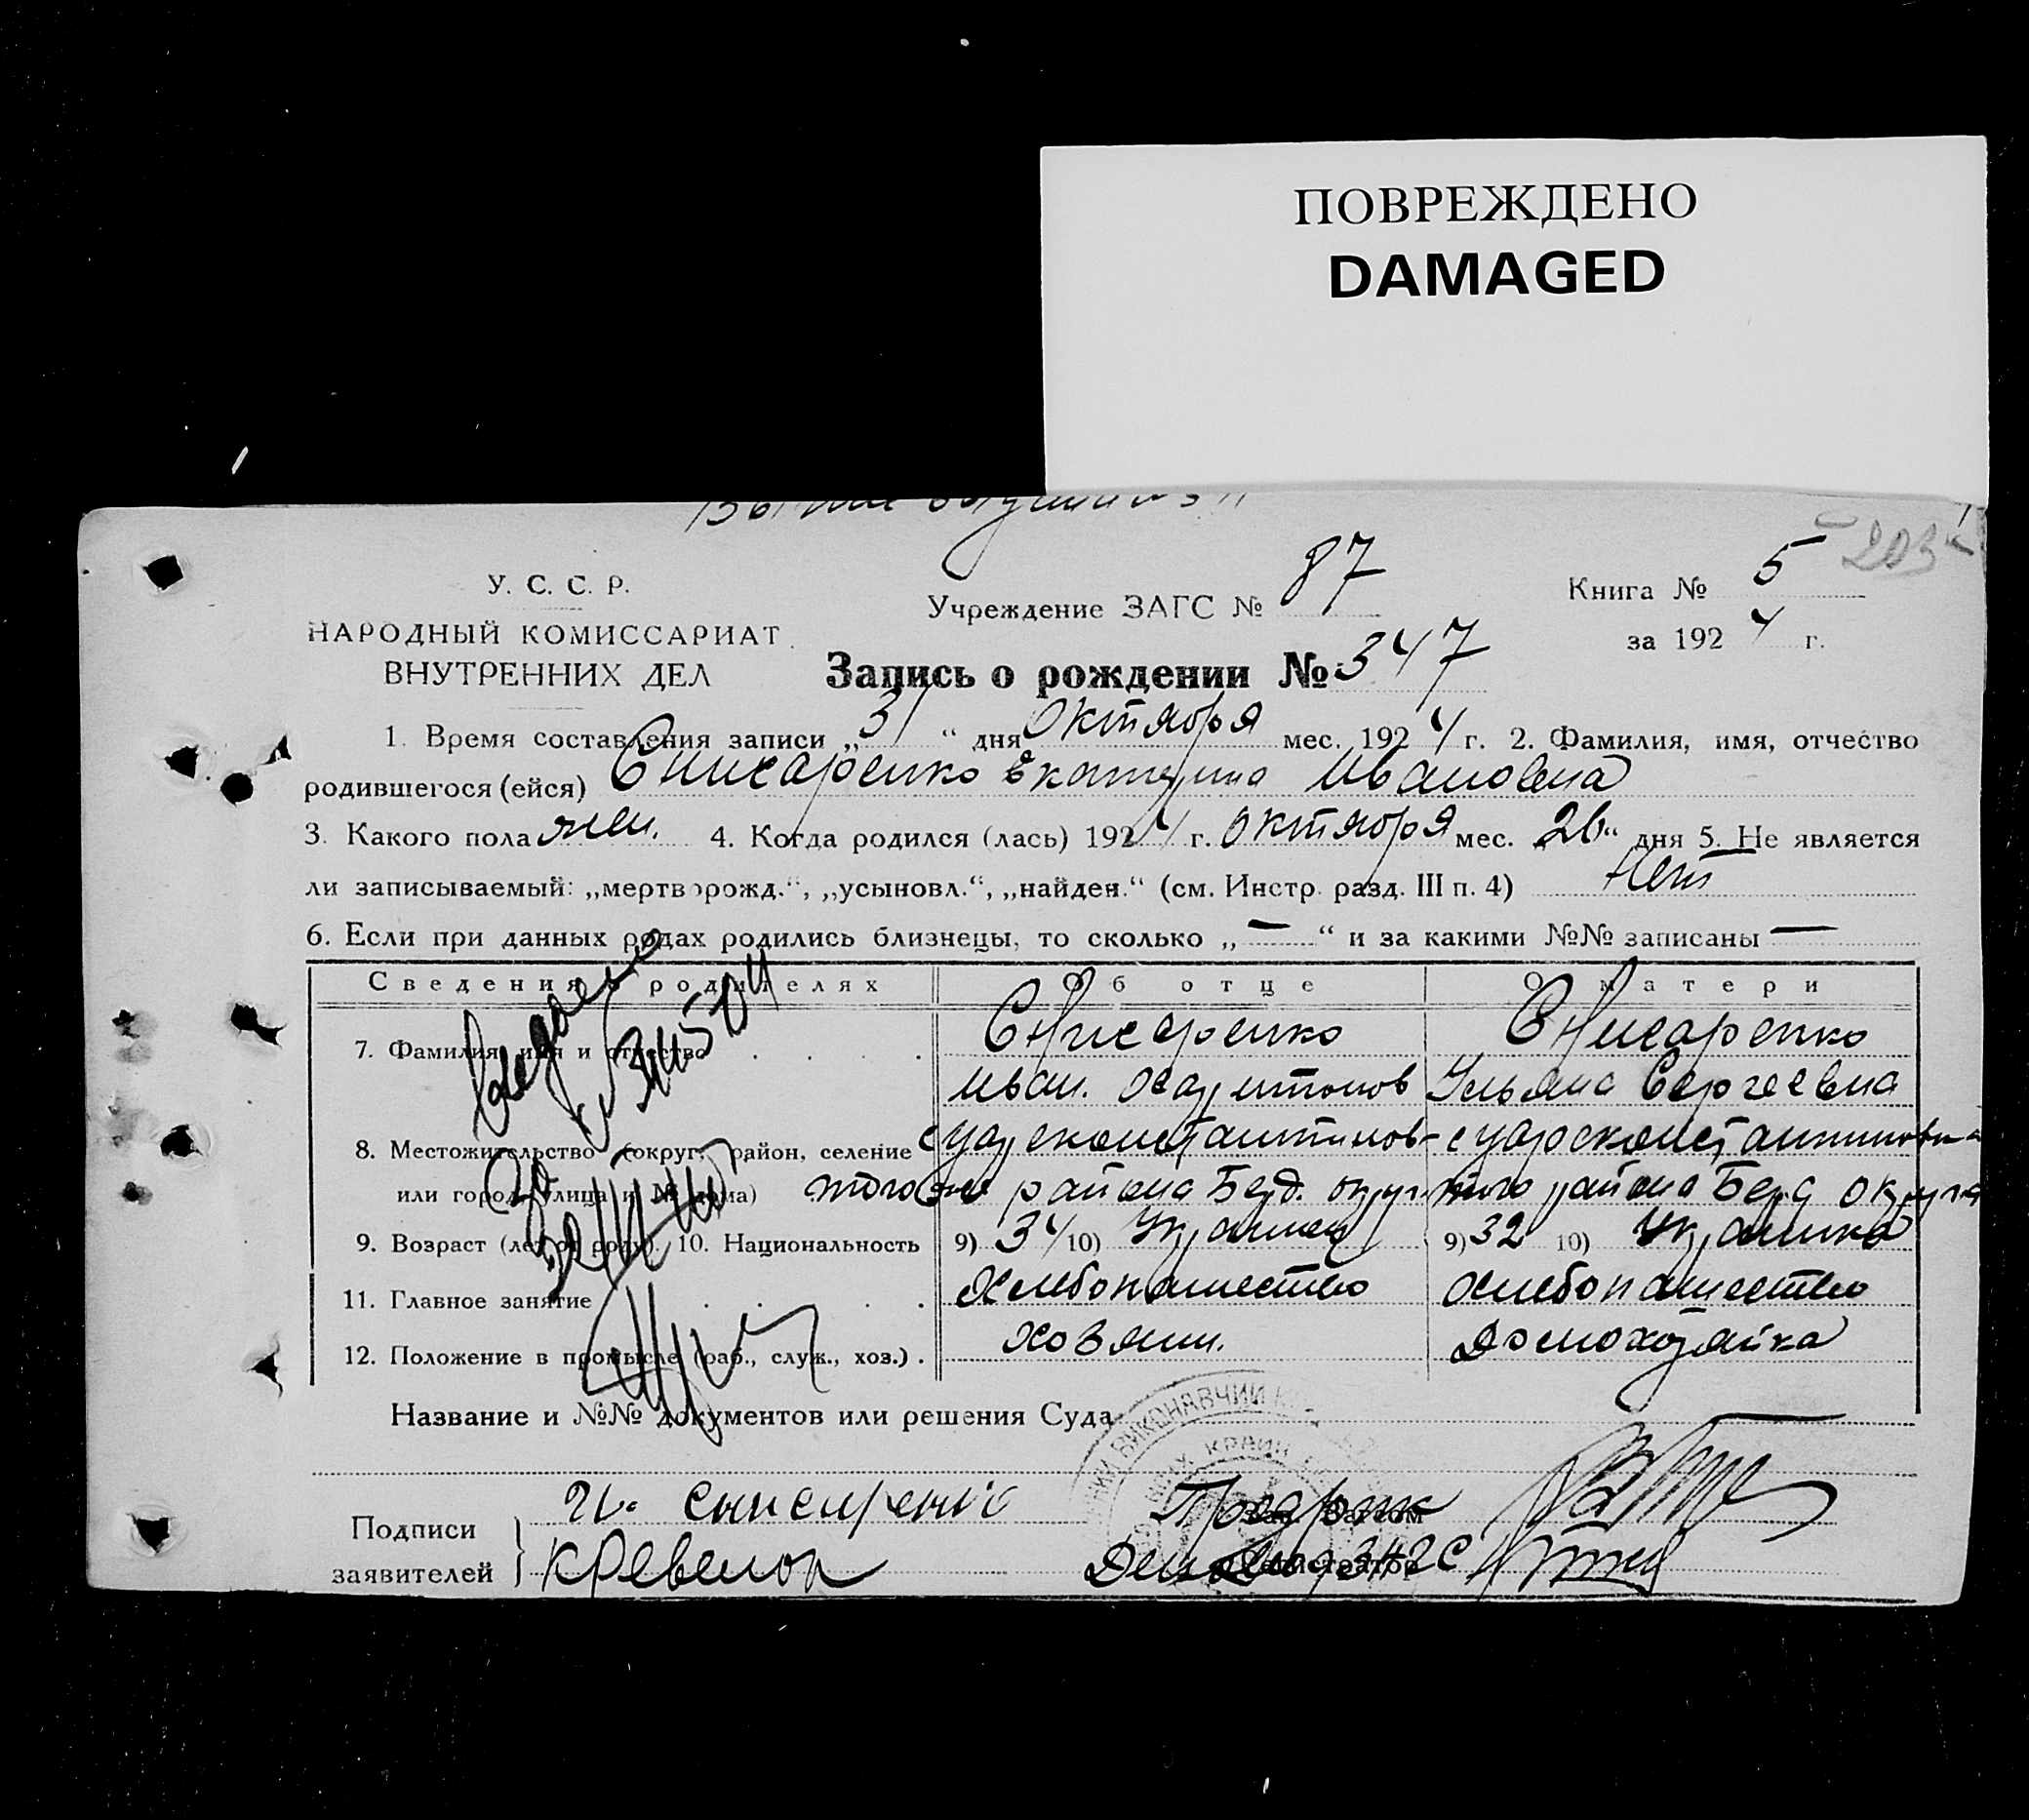 ПОВРЕЖДЕНО
DAMAGED
У. С. С. Р.
НАРОДНЫЙ КОМИССАРИАТ
ВНУТРЕННИХ ДЕЛ
Учреждение ЗАГС № 87
Книга № 5 203
за 1924 г.
Запись о рождении № 347
1. Время составления записи „31“ дня Октября мес. 1924 г. 2. Фамилия, имя, отчество
родившегося (ейся) Снисаренко Екатерина Ивановна
3. Какого пола жен. 4. Когда родился (лась) 1924 г. Октября мес. „26“ дня 5. Не является
ли записываемый: „мертворожд.“, „усыновл.“, „найден.“ (см. Инстр. разд. III п. 4) Нет
6. Если при данных родах родились близнецы, то сколько „—“ и за какими №№ записаны —
Сведения о родителях Об отце О матери
7. Фамилия, имя и отчество . . . Снисаренко Снисаренко
Иван. Харитонов Ульяна Сергеевна
8. Местожительство (округ, район, селение с Цареконстантинов- с Цареконстантиновка
или город, улица и № дома) того же района Берд. округ. того района Берд округа
9. Возраст (лет от роду). 10. Национальность 9) 34 10) Украинец 9) 32 10) Украинка
11. Главное занятие . . . . Хлебопашество Хлебопашество
12. Положение в промысле (раб., служ., хоз.) . Хозяин. Домохозяйка
Название и №№ документов или решения Суда
Подписи
заявителей
И. Снисаренко
Зав. Загсом
Регистратор